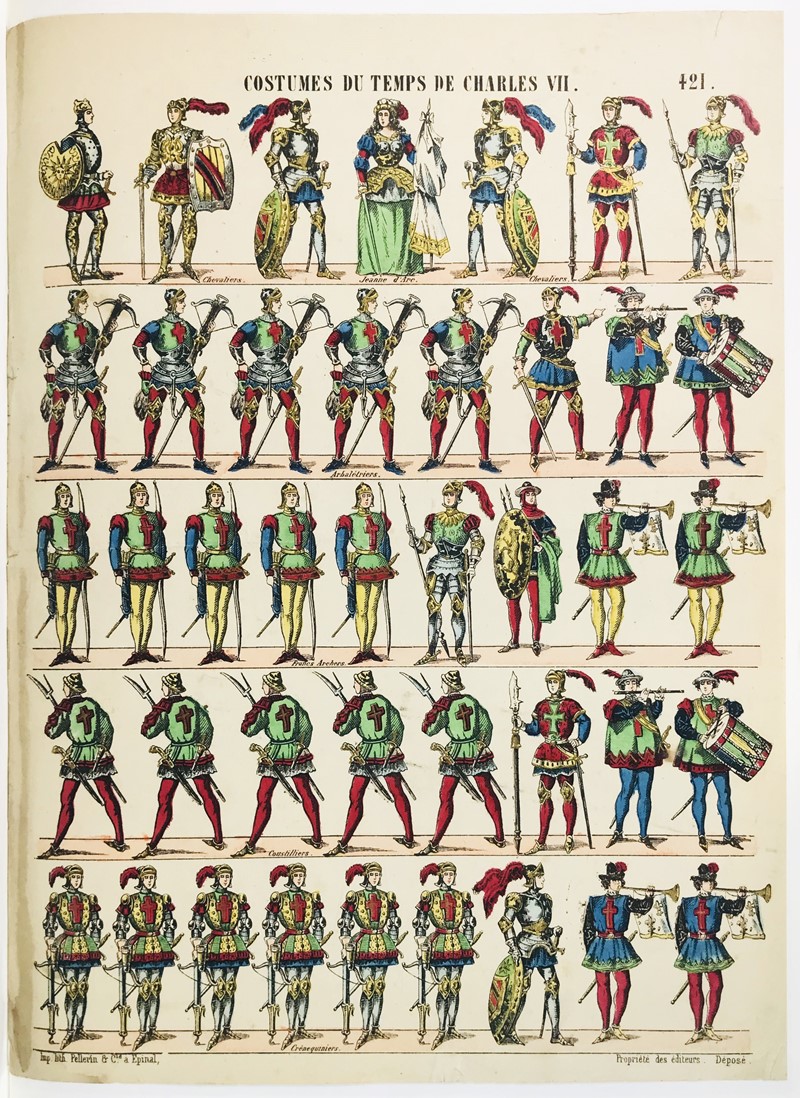 COSTUMES DU TEMPS DE CHARLES VII. 421.
Chevaliers. Jeanne d'Arc. Chevaliers.
Arbalétriers.
Francs Archers.
Coustilliers.
Crénequiniers.
Imp. lith. Pellerin & Cie à Epinal, Propriété des éditeurs. Déposé.